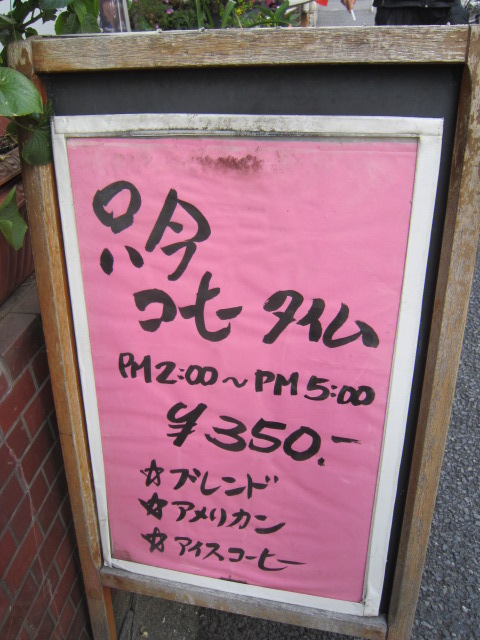 吟
コヒー タイム
PM2:00～PM5:00
¥350.-
☆ブレンド
☆アメリカン
☆アイスコーヒー